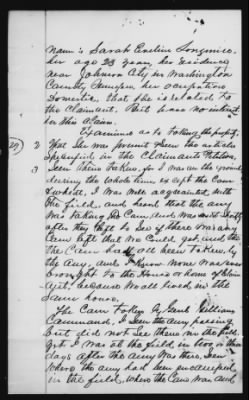 name is Sarah Eveline Longmire.
her age 23 years, her residence
near Johnson City in Washington
County Tennessee her occupation
Domestic, that she is related to
the claimant, But have no interest
in this claim.
Examined as to taking the property
29) 2 That she was present when the articles
Specified in the Claimants Petition,
3 Seen them taken, for I was on the ground
during the whole time except the Corn
& wheat, I was well acquainted with
the field, and heard that the army
was taking the Corn, and was out
after they left to See if there was any
Corn left that we Could get, and
the Corn had all been taken by
the Army, and I know none was ever
brought to the House or home of Claim
ant, because we all lived in the
Same house.
The Corn taken by Genl Gillems
Command, I seen the army passing
but did not See them in the field
yet I was at the field in two or three
days after the army was there, Seen
where the army had been encamped
in the field, where the Corn was and